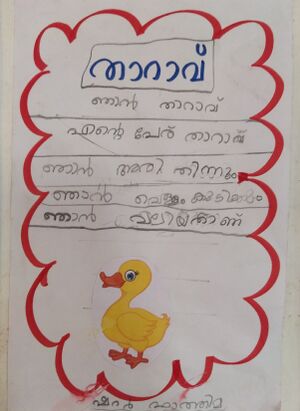 താറാവ്
ഞാൻ താറാവ്
എന്റെ പേര് താറാവ്
ഞാൻ അരി തിന്നും
ഞാൻ വെള്ളം കുടിക്കും
ഞാൻ വലിയതാണ്
ഫാത്തിമ